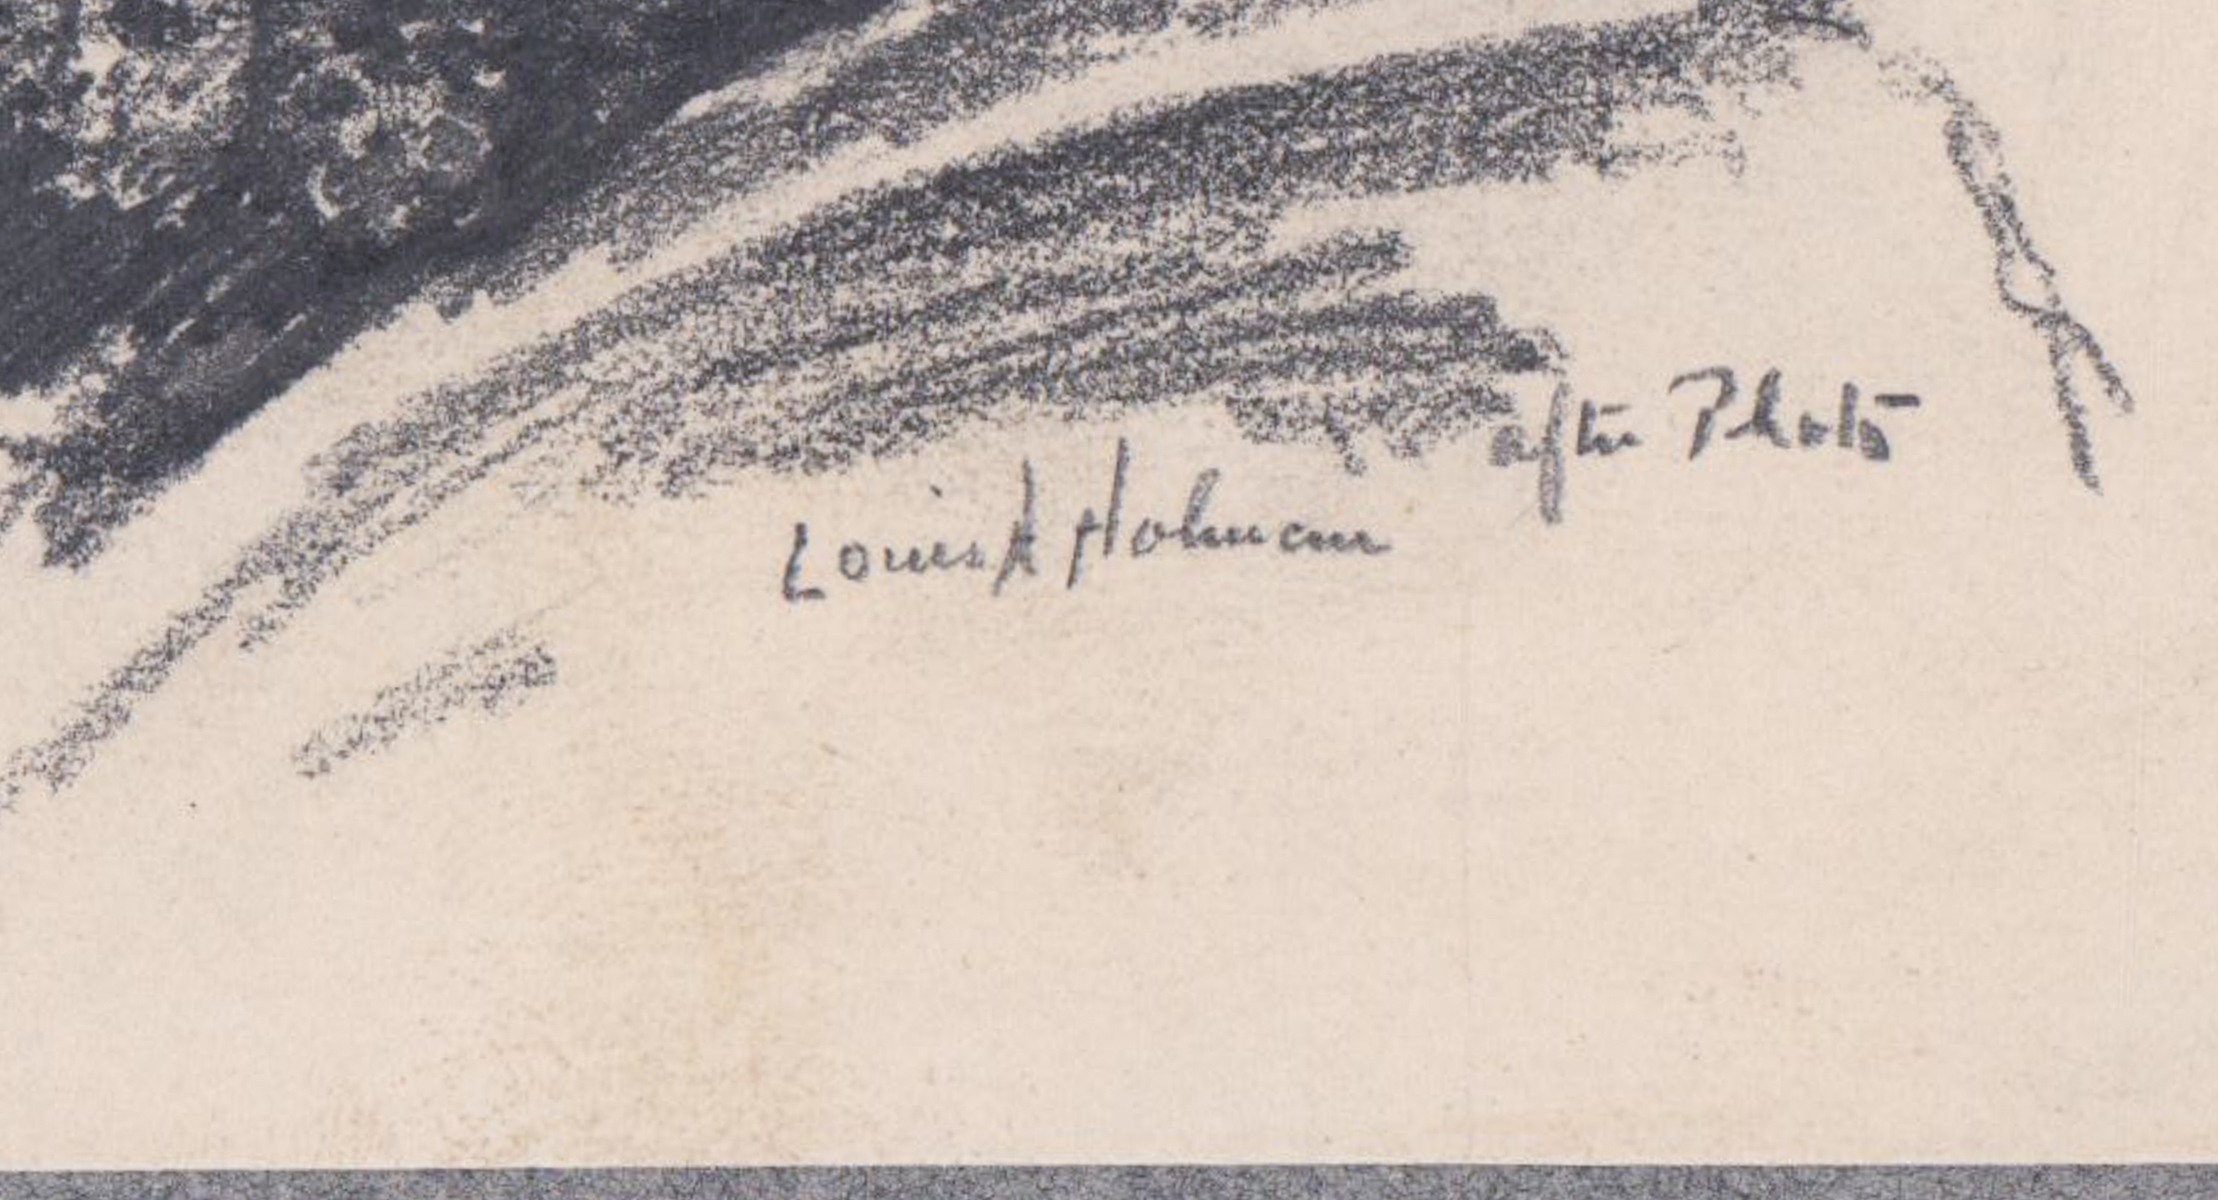 Louis A Holman
after Photo